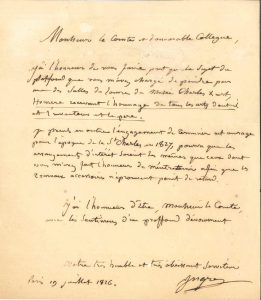 Monsieur le Comte et honorable Collègue,
j'ai l'honneur de vous faire part que le sujet du
plafond que vous m'avez chargé de peindre pour
une des salles du Louvre du Musée Charles X, est
Homère recevant l'hommage de tous les arts dont il
est l'inventeur et le père.
je prends en outre l'engagement de terminer cet ouvrage
pour l'époque de la St Charles en 1827, pourvu que les
arrangements d'intérêt soient les mêmes que ceux dont
vous m'avez fait l'honneur de m'entretenir afin que les
travaux n'éprouvent point de retard.
j'ai l'honneur d'être Monsieur le Comte
avec les sentiments d'un profond dévouement
votre très humble et très obéissant serviteur
Ingres
Paris 19 juillet 1826.